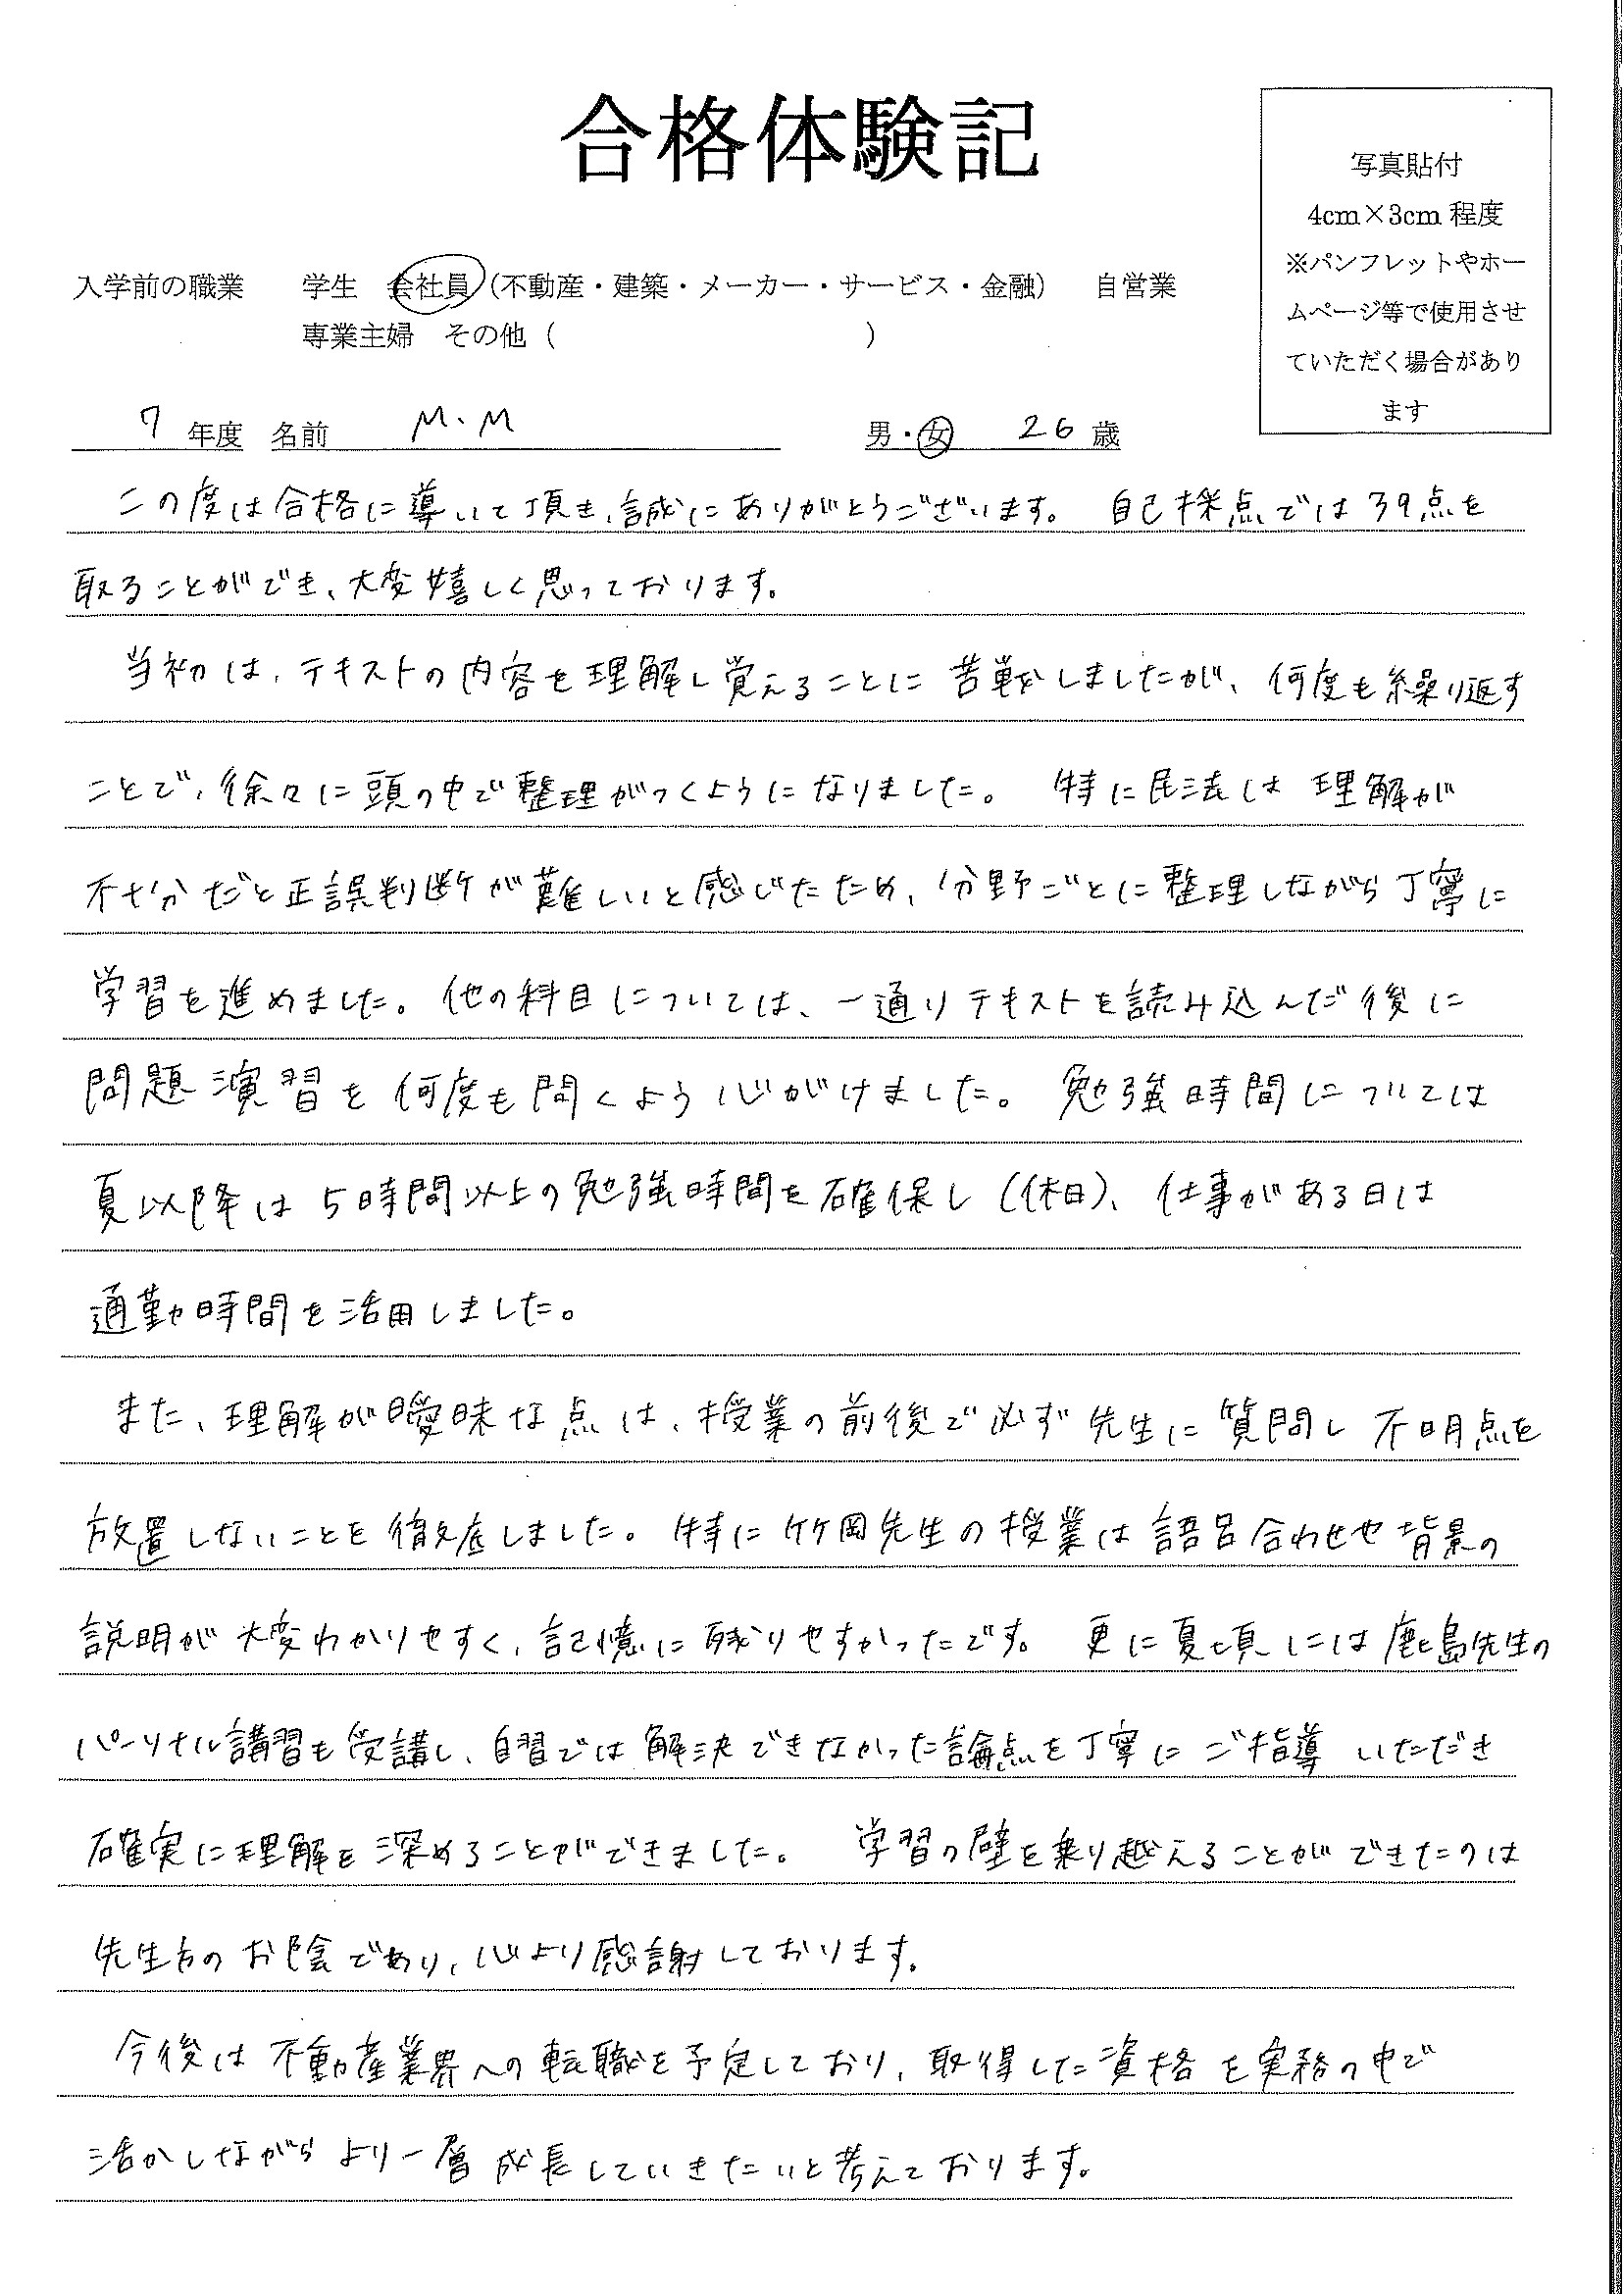 合格体験記
写真貼付
4cm×3cm 程度
※パンフレットやホー
ムページ等で使用させ
ていただく場合があり
ます
入学前の職業 学生 会社員(不動産・建築・メーカー・サービス・金融) 自営業
専業主婦 その他( )
7 年度 名前 M.M 男・女 26 歳
この度は合格に導いて頂き、誠にありがとうございます。 自己採点では39点を
取ることができ、大変嬉しく思っております。
当初は、テキストの内容を理解し覚えることに苦戦しましたが、何度も繰り返す
ことで、徐々に頭の中で整理がつくようになりました。 特に民法は理解が
不十分だと正誤判断が難しいと感じたため、分野ごとに整理しながら丁寧に
学習を進めました。他の科目については、一通りテキストを読み込んだ後に
問題演習を何度も問くよう心がけました。 勉強時間については
夏以降は5時間以上の勉強時間を確保し(休日)、仕事がある日は
通勤時間を活用しました。
また、理解が曖昧な点は、授業の前後で必ず先生に質問し不明点を
放置しないことを徹底しました。特に竹岡先生の授業は語呂合わせや背景の
説明が大変わかりやすく、記憶に残りやすかったです。 更に夏頃には鹿島先生の
パーソナル講習も受講し、自習では解決できなかった論点を丁寧にご指導いただき
確実に理解を深めることができました。 学習の壁を乗り越えることができたのは
先生方のお陰であり、心より感謝しております。
今後は不動産業界への転職を予定しており、取得した資格を実務の中で
活かしながらより一層成長していきたいと考えております。